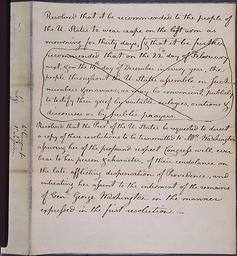 Resolved that it be recommended to the people of
the U. States to wear crape on the left arm as
mourning for thirty days, & that it be further
recommended that on the 22d day of February
next, the day of December in every year, this
people throughout the U. States assemble in such
numbers & manner, as may be convenient, publicly
to testify their grief by suitable eulogies, orations &
discourses or by public prayers.
Resolved that the Pres. of the U. States be requested to direct
a copy of these resolutions to be transmitted to Mrs. Washington
assuring her of the profound respect Congress will ever
bear to her person & character, of their condolence on
the late afflicting dispensation of Providence, and
entreating her assent to the interment of the remains
of Genl. George Washington in the manner
expressed in the first resolution.